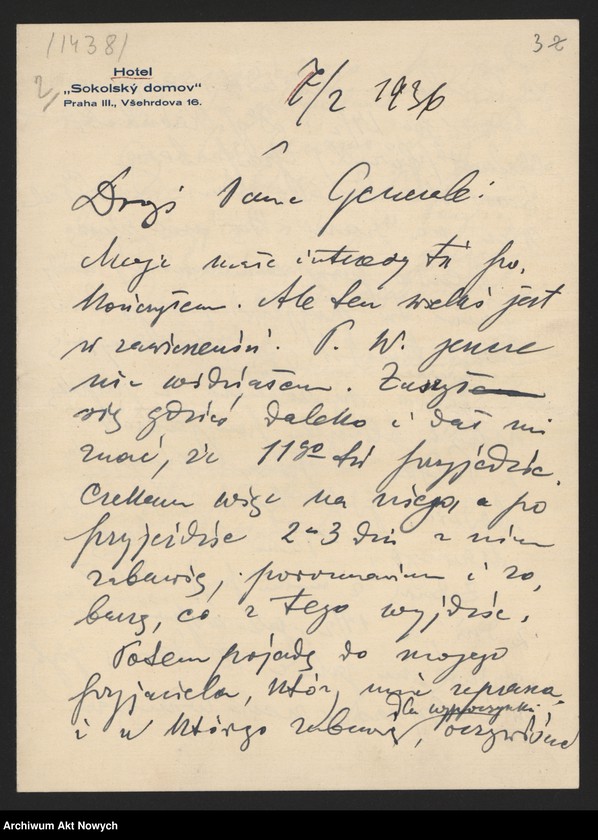 /1438/
32
2,
Hotel
„Sokolský domov“
Praha III., Všehrdova 16.
7/2 1936
Drogi Panie Generale!
Moje małe interesy tu po,
kończyłem. Ale ten wielki jest
w zawieszeniu. P. W. jeszcze
nie widziałem. Zaszył
się gdzieś daleko i dał mi
znać, że 11go tu przyjedzie.
Czekam więc na niego, a po
przyjeździe 2-3 dni z nim
zabawię, porozmawiam i zo,
baczę, co z tego wyjdzie.
Potem pojadę do mojego
przyjaciela, który mnie zaprasza,
dla wypoczynku
i u którego zabawię, oczywiście
Archiwum Akt Nowych